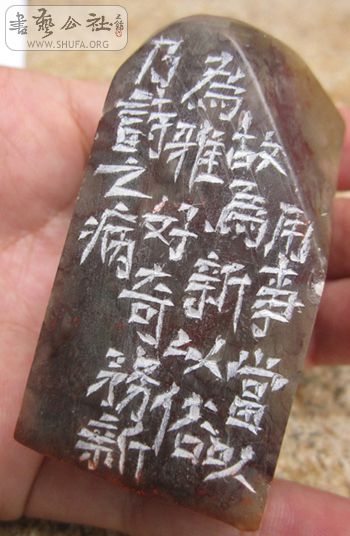 書藝公社
WWW.SHUFA.ORG
用事當以
故為新以俗
為雅好奇務新
乃詩之病